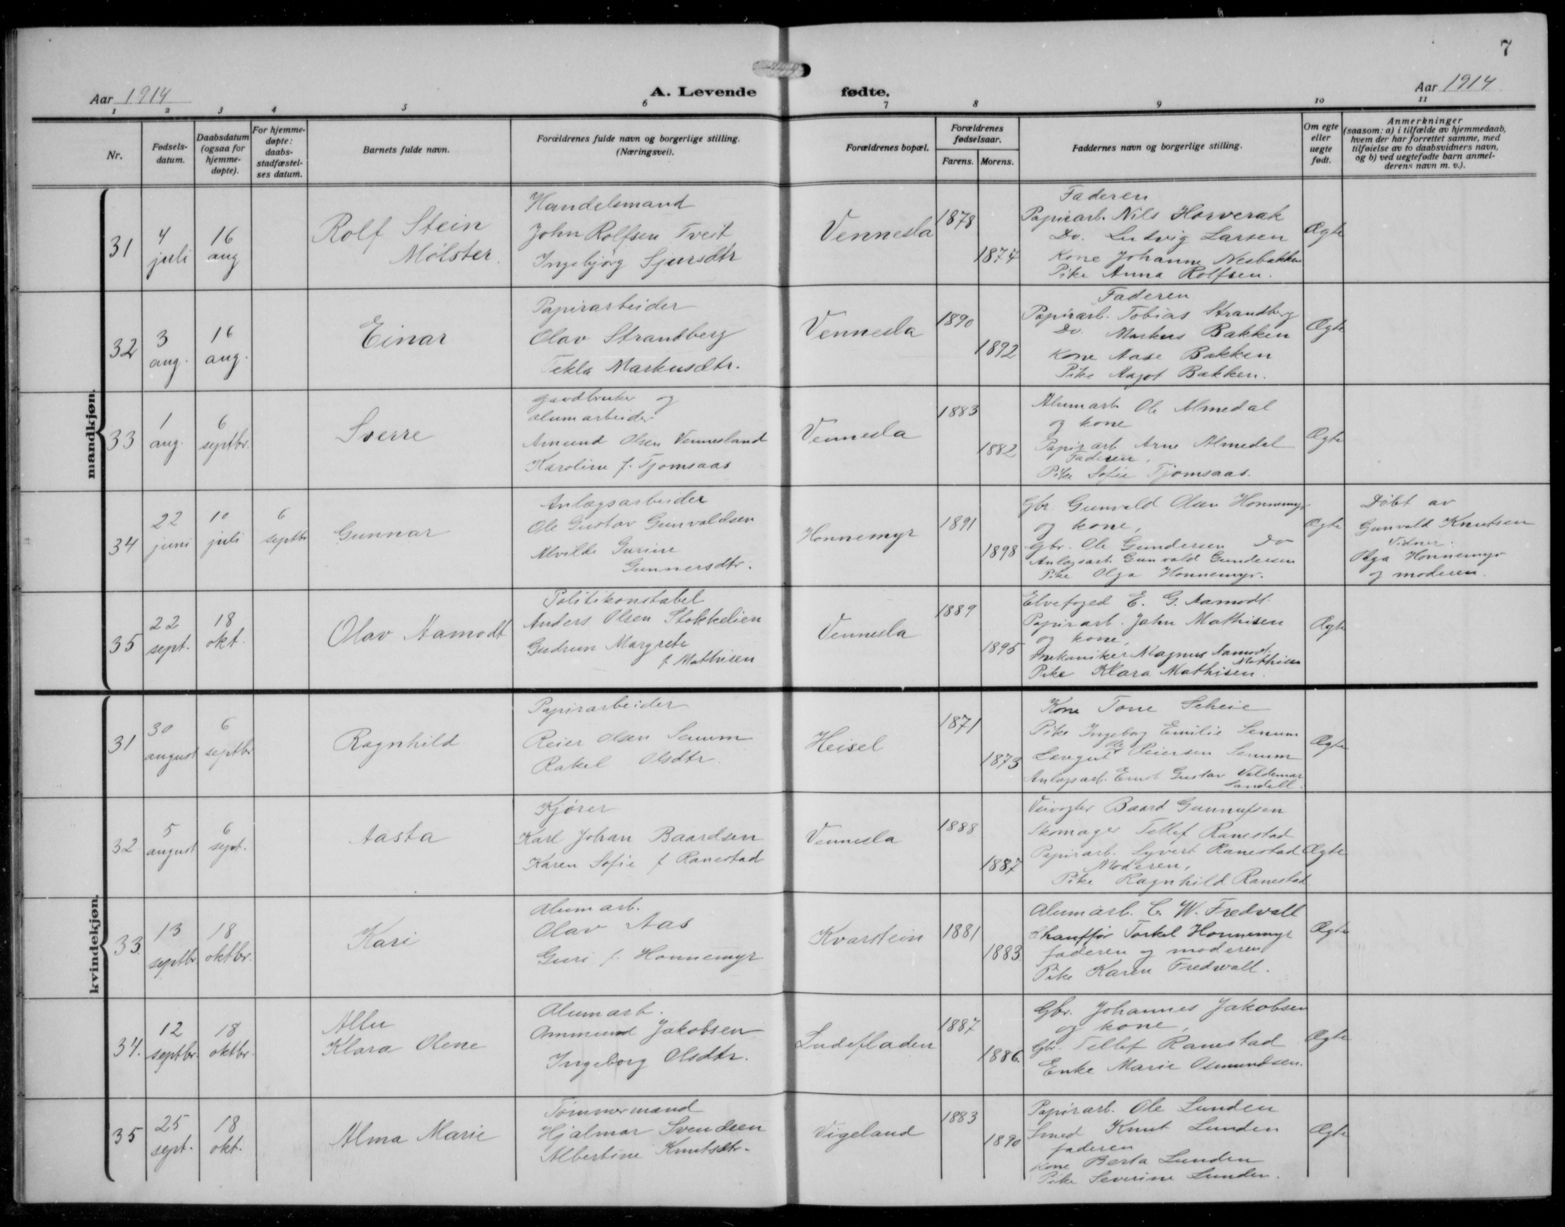 7
Aar 1914
A. Levende fødte.
Aar 1914
1 2 3 4 5 6 7 8 9 10 11
Nr.
Fødsels-
datum.
Daabsdatum
(ogsaa for
hjemme-
døpte).
For hjemme-
døpte:
daabs-
stadfæstel-
ses datum.
Barnets fulde navn.
Forældrenes fulde navn og borgerlige stilling.
(Næringsvei).
Forældrenes bopæl.
Forældrenes
fødselsaar.
Farens. Morens.
Faddernes navn og borgerlige stilling.
Om egte
eller
uegte
født.
Anmerkninger
(saasom: a) i tilfælde av hjemmedaab,
hvem der har forrettet samme, med
tilføielse av to daabsvidners navn,
og b) ved uegtefødte barn anmel-
derens navn m. v.).
mandkjøn.
31
4
juli
16
aug
Rolf Stein
Mølster.
Handelsmand
John Rolfsen Tveit
Ingebjørg Sjursdtr
Vennesla
1878
1874
Faderen
Papirarb. Nils Horverak
Do. Ludvig Larsen
Kone Johanne Nesbakken
Pike Anna Rolfsen.
Ægte
32
3
aug.
16
aug.
Einar
Papirarbeider
Olav Strandberg
Tekla Markusdtr.
Vennesla
1890
1892
Faderen
Papirarb. Tobias Strandberg
Do. Markus Bakken
Kone Aase Bakken
Pike Aagot Bakken.
Ægte
33
1
aug.
6
septbr.
Sverre
Gaardbruker og
alumarbeider
Amund Olsen Vennesland
Karoline f. Tjomsaas
Vennesla
1883
1882
Alumarb. Ole Almedal
og kone
Papirarb. Arne Almedal
Faderen,
Pike Sofie Tjomsaas.
Ægte
34
22
juni
10
juli
6
septbr
Gunnar
Anlægsarbeider
Ole Gustav Gunvaldsen
Alvilde Gurine
Gunnersdtr.
Honnemyr
1891
1898
Gbr. Gunvald Olsen Honnemyr
og kone,
Gbr. Ole Gundersen Do
Anlægsarb. Gunvald Gundersen
Pike Olga Honnemyr.
Ægte
Døbt av
Gunvald Knutsen
Vidner.
Olga Honnemyr
og moderen.
35
22
sept.
18
okt.
Olav Aamodt
Politikonstabel
Anders Olsen Stokkelien
Gudrun Margrete
f. Mathisen
Vennesla
1889
1895
Elvefoged E. G. Aamodt.
Papirarb. John Mathisen
og kone,
Mekaniker Magnus Aamodt
Mathisen
Pike Klara Mathisen.
Ægte
kvindekjøn.
31
30
august
6
septbr
Ragnhild
Papirarbeider
Reier Olsen Senum
Rakel Olsdtr.
Heisel
1871
1873
Kone Tone Scheie
Pike Ingebog Emilie Senum
Reiersen Senum
Anlægsarb. Ernst Gustav Valdemar
Sandell.
Ægte
32
5
august
6
sept.
Aasta
Kjører
Karl Johan Baardsen
Karen Sofie f Ranestad
Vennesla
1888
1887
Veivogter Baard Gunnufsen
Skomager Tellef Ranestad
Papirarb. Syvert Ranestad
Moderen,
Pike Ragnhild Ranestad
Ægte
33
13
septbr.
18
oktbr.
Kari
Alumarb.
Olav Aas
Guri f. Honnemyr
Kvarstein
1881
1883.
Alumarb. C. W. Fredvall
Chauffør Torkel Honnemyr
faderen og moderen
Pike Karen Fredwall.
Ægte
34.
12
septbr.
18
oktbr.
Klara Olene
Alumarb.
Ommund Jakobsen
Ingeborg Olsdtr.
Lundefladen
1887
1886.
Gbr. Johannes Jakobsen
og kone,
Gbr. Tellef Ranestad
Enke Marie Osmundsen.
Ægte
35
25
sept.
18
okt.
Alma Marie
Tømmermand
Hjalmar Svendsen
Albertine Knutsdtr.
Vigeland
1883
1890
Papirarb. Ole Lunden
Smed Knut Lunden
faderen
Kone Berta Lunden
Pike Severine Lunden.
Ægte